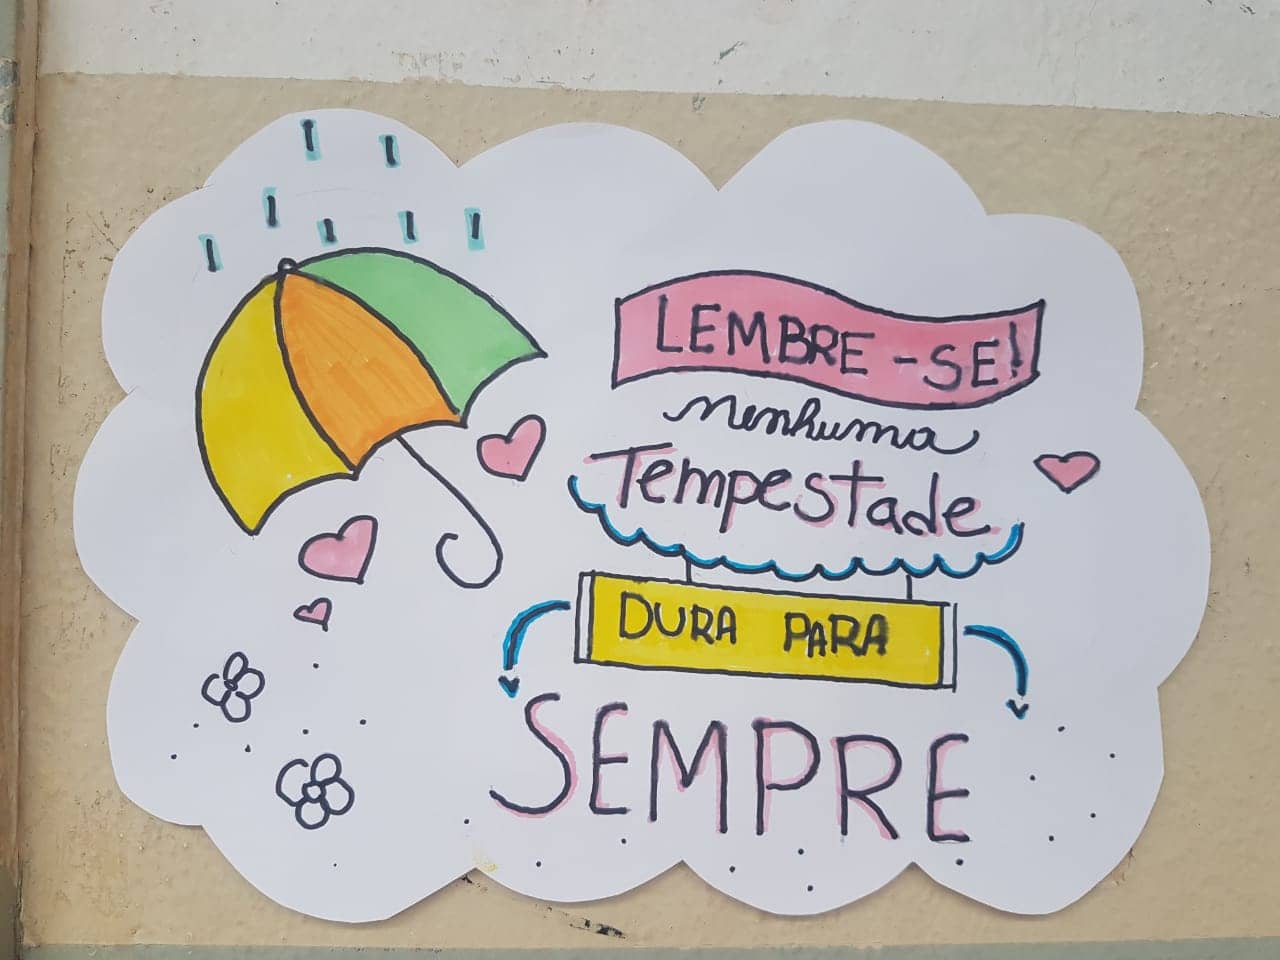 LEMBRE-SE!
nenhuma
Tempestade
DURA PARA
SEMPRE